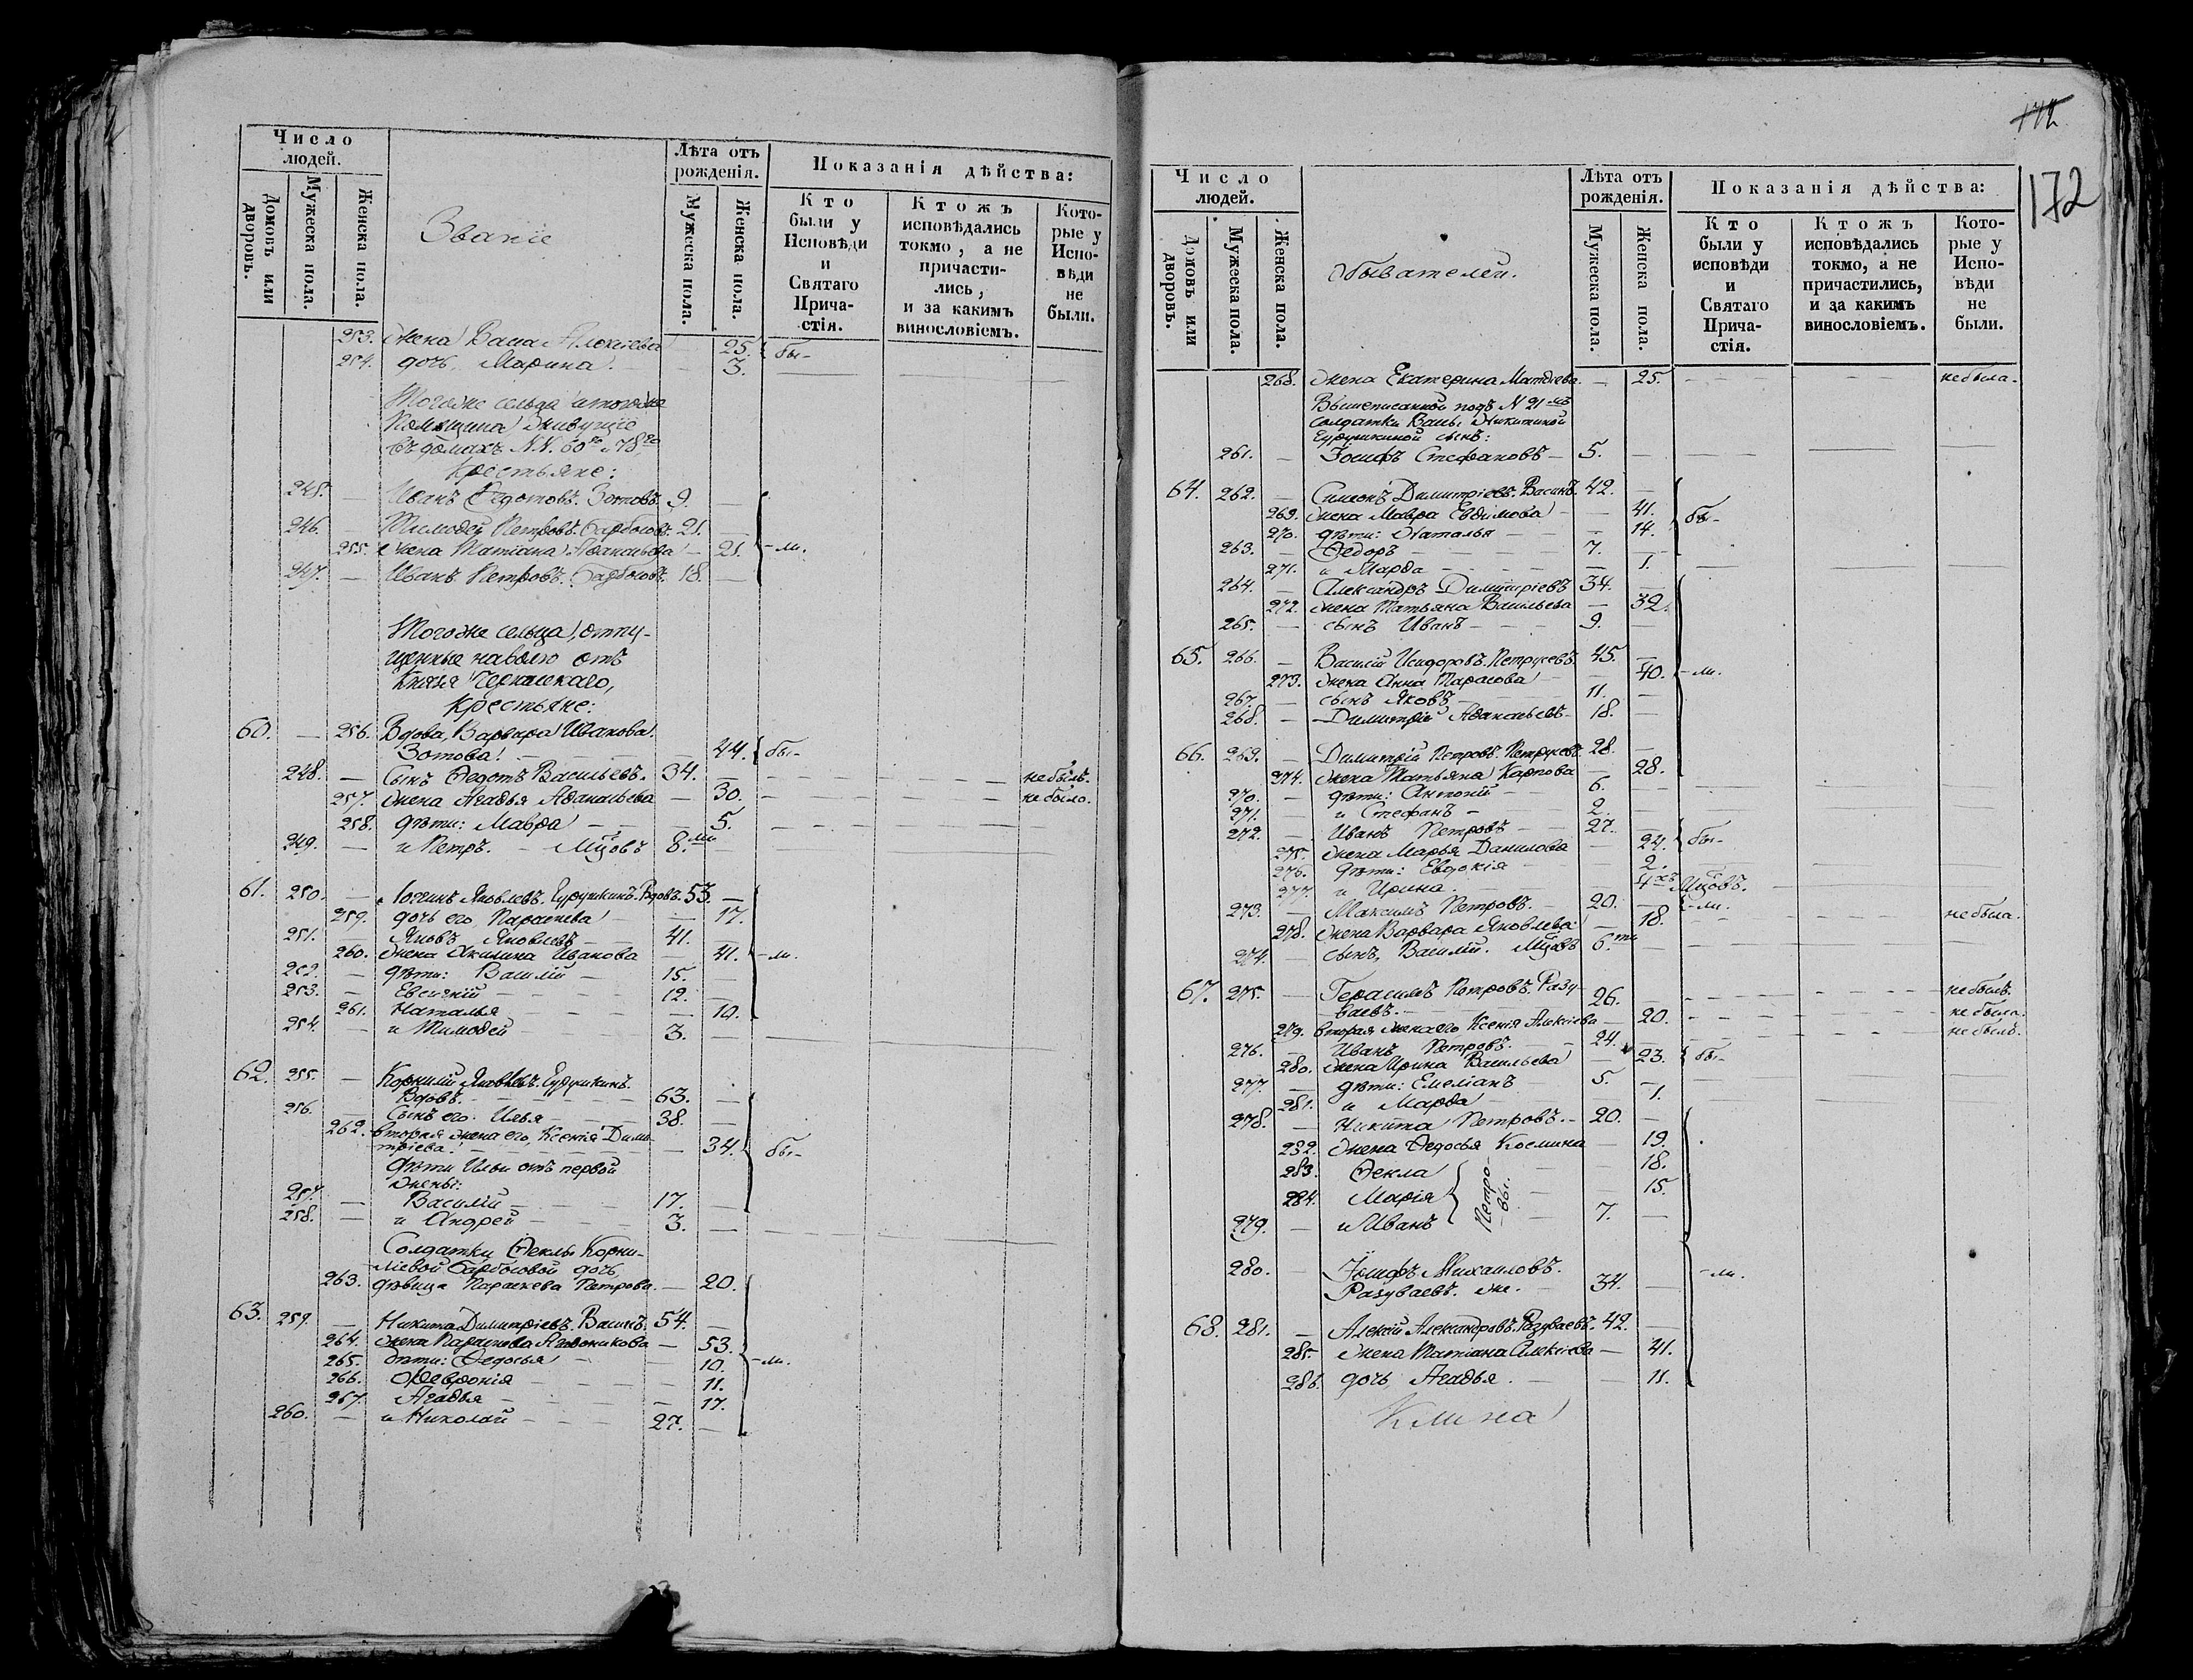 Число людей.
Домовъ или дворовъ.
Мужеска пола.
Женска пола.
Званіе
Лѣта отъ рожденія.
Мужеска пола.
Женска пола.
Показанія дѣйства:
Кто были у Исповѣди и Святаго Прича-стія.
Ктожъ исповѣдались токмо, а не причасти-лись, и за какимъ винословіемъ.
Кото-рые у Испо-вѣди не были.
253. Жена Васса Алексіева — 25. бы-
254. дочь, Марина. — 3.
Тогоже сельца
Помѣщика Живущіе
въ домахъ N.N. 60го и 78го
Крестьяне:
245. — Иванъ Ѳедотовъ. Зотовъ. 9. —
246. — Тимоѳей Петровъ. Барбосовъ. 21. —
255. Жена Татіана Аѳанасьева — 21. - ли.
247. — Иванъ Петровъ. Барбосовъ. 18. —
Тогоже сельца, отпу-
щенные наволю отъ
Князя Черкаскаго,
Крестьяне:
60. — 256. Вдова, Варвара Иванова.
Зотова. — 44. бы-
248. — Сынъ Ѳедотъ Васильевъ. 34. — небылъ.
257. Жена Агаѳья Аѳанасьева — 30. — небыла.
258. дѣти: Мавра — 5.
249. — и Петръ. — Мцовъ 8.ми
61. 250. — Логинъ Яковлевъ. Ердушкинъ. Вдовъ. 53. —
259. дочь его Параскева — 17.
251. — Яковъ Яковлевъ — 41.
260. Жена Акилина Иванова — 41. - ли.
252. — дѣти: Василій — 15 —
253. — Евсигній — 12. —
261. Наталья — 10.
254. — и Тимоѳей — 3. —
62. 255. — Корнилій Яковлевъ. Ердушкинъ.
Вдовъ. — 63. —
256. — Сынъ его. Илья — 38. —
262. вторая жена его, Ксенія Дими-
тріева. — 34. бы-
Дѣти Ильи отъ первой
жены:
257. — Василій — 17. —
258. — и Андрей — 3. —
Солдатки Ѳеклы Корни-
ліевой Барбосовой дочь,
263. дѣвица Параскева Петрова. — 20.
63. 259. — Никита Димитріевъ. Васинъ. 54. —
264. Жена Параскева — 53.
265. дѣти: Ѳедосья — 10. - ли.
266. Ѳевронія — 11.
267. Агаѳья — 17.
260. — и Николай — 27. —
172
172
Число людей.
Домовъ или дворовъ.
Мужеска пола.
Женска пола.
обывателей.
Лѣта отъ рожденія.
Мужеска пола.
Женска пола.
Показанія дѣйства:
Кто были у исповѣди и Святаго Прича-стія.
Ктожъ исповѣдались токмо, а не причастились, и за какимъ винословіемъ.
Кото-рые у Испо-вѣди не были.
268. Жена Екатерина Матѳіева. — 25. — небыла.
Вышеписанной подъ N 21мъ
солдатки Вассы Никитиной
Ердушкиной сынъ:
261. — Іосифъ Стефановъ — 5. —
64. 262. — Симеонъ Димитріевъ. Васинъ. 42. —
269. Жена Мавра Евѳимова — 41. бы-
270. дѣти: Наталья — 14.
263. — Ѳедоръ — 7. —
271. и Марѳа — 1.
264. — Александръ Димитріевъ 34. —
272. Жена Татьяна Васильева — 32.
265. — сынъ Иванъ — 9. —
65. 266. — Василій Исидоровъ. Петрусевъ. 45. —
273. Жена Анна Тарасова — 40. - ли.
267. — сынъ Яковъ — 11. —
268. — Димитрій Аѳанасьевъ — 18. —
66. 269. — Димитрій Петровъ. Петрусевъ. 28. —
274. Жена Татьяна Карпова — 28.
270. — дѣти: Антоній — 6.
271. — и Стефанъ — 2.
272. — Иванъ Петровъ — 27. —
275. Жена Марья Данилова — 24. бы-
276. дѣти: Евдокія — 2.
277. и Ирина. — 4хъ Мцовъ.
273. — Максимъ Петровъ. — 20. — - ли.
278. Жена Варвара Яковлева — 18. — небыла.
274. — сынъ, Василій. Мцовъ 6.ти —
67. 275. — Герасимъ Петровъ. Разу-
ваевъ. — 26. — небылъ.
279. вторая жена его Ксенія Алексіева — 20. — небыла.
276. — Иванъ Петровъ. — 24. — небылъ.
280. Жена Ирина Васильева — 23. бы-
277. — дѣти: Емеліанъ — 5. —
281. и Марѳа — 1.
278. — Никита Петровъ. — 20. —
232. Жена Ѳедосья Космина — 19.
283. Ѳекла — 18.
284. Марія — 15.
Петро-
вы.
279. — и Иванъ — 7. —
280. — Іосифъ Михаиловъ.
Разуваевъ. же. — 34. — - ли.
68. 281. — Алексій Александровъ. Разуваевъ. 42. —
285. Жена Татіана Алексіева — 41.
286. дочь, Агаѳья. — 11.
Клина